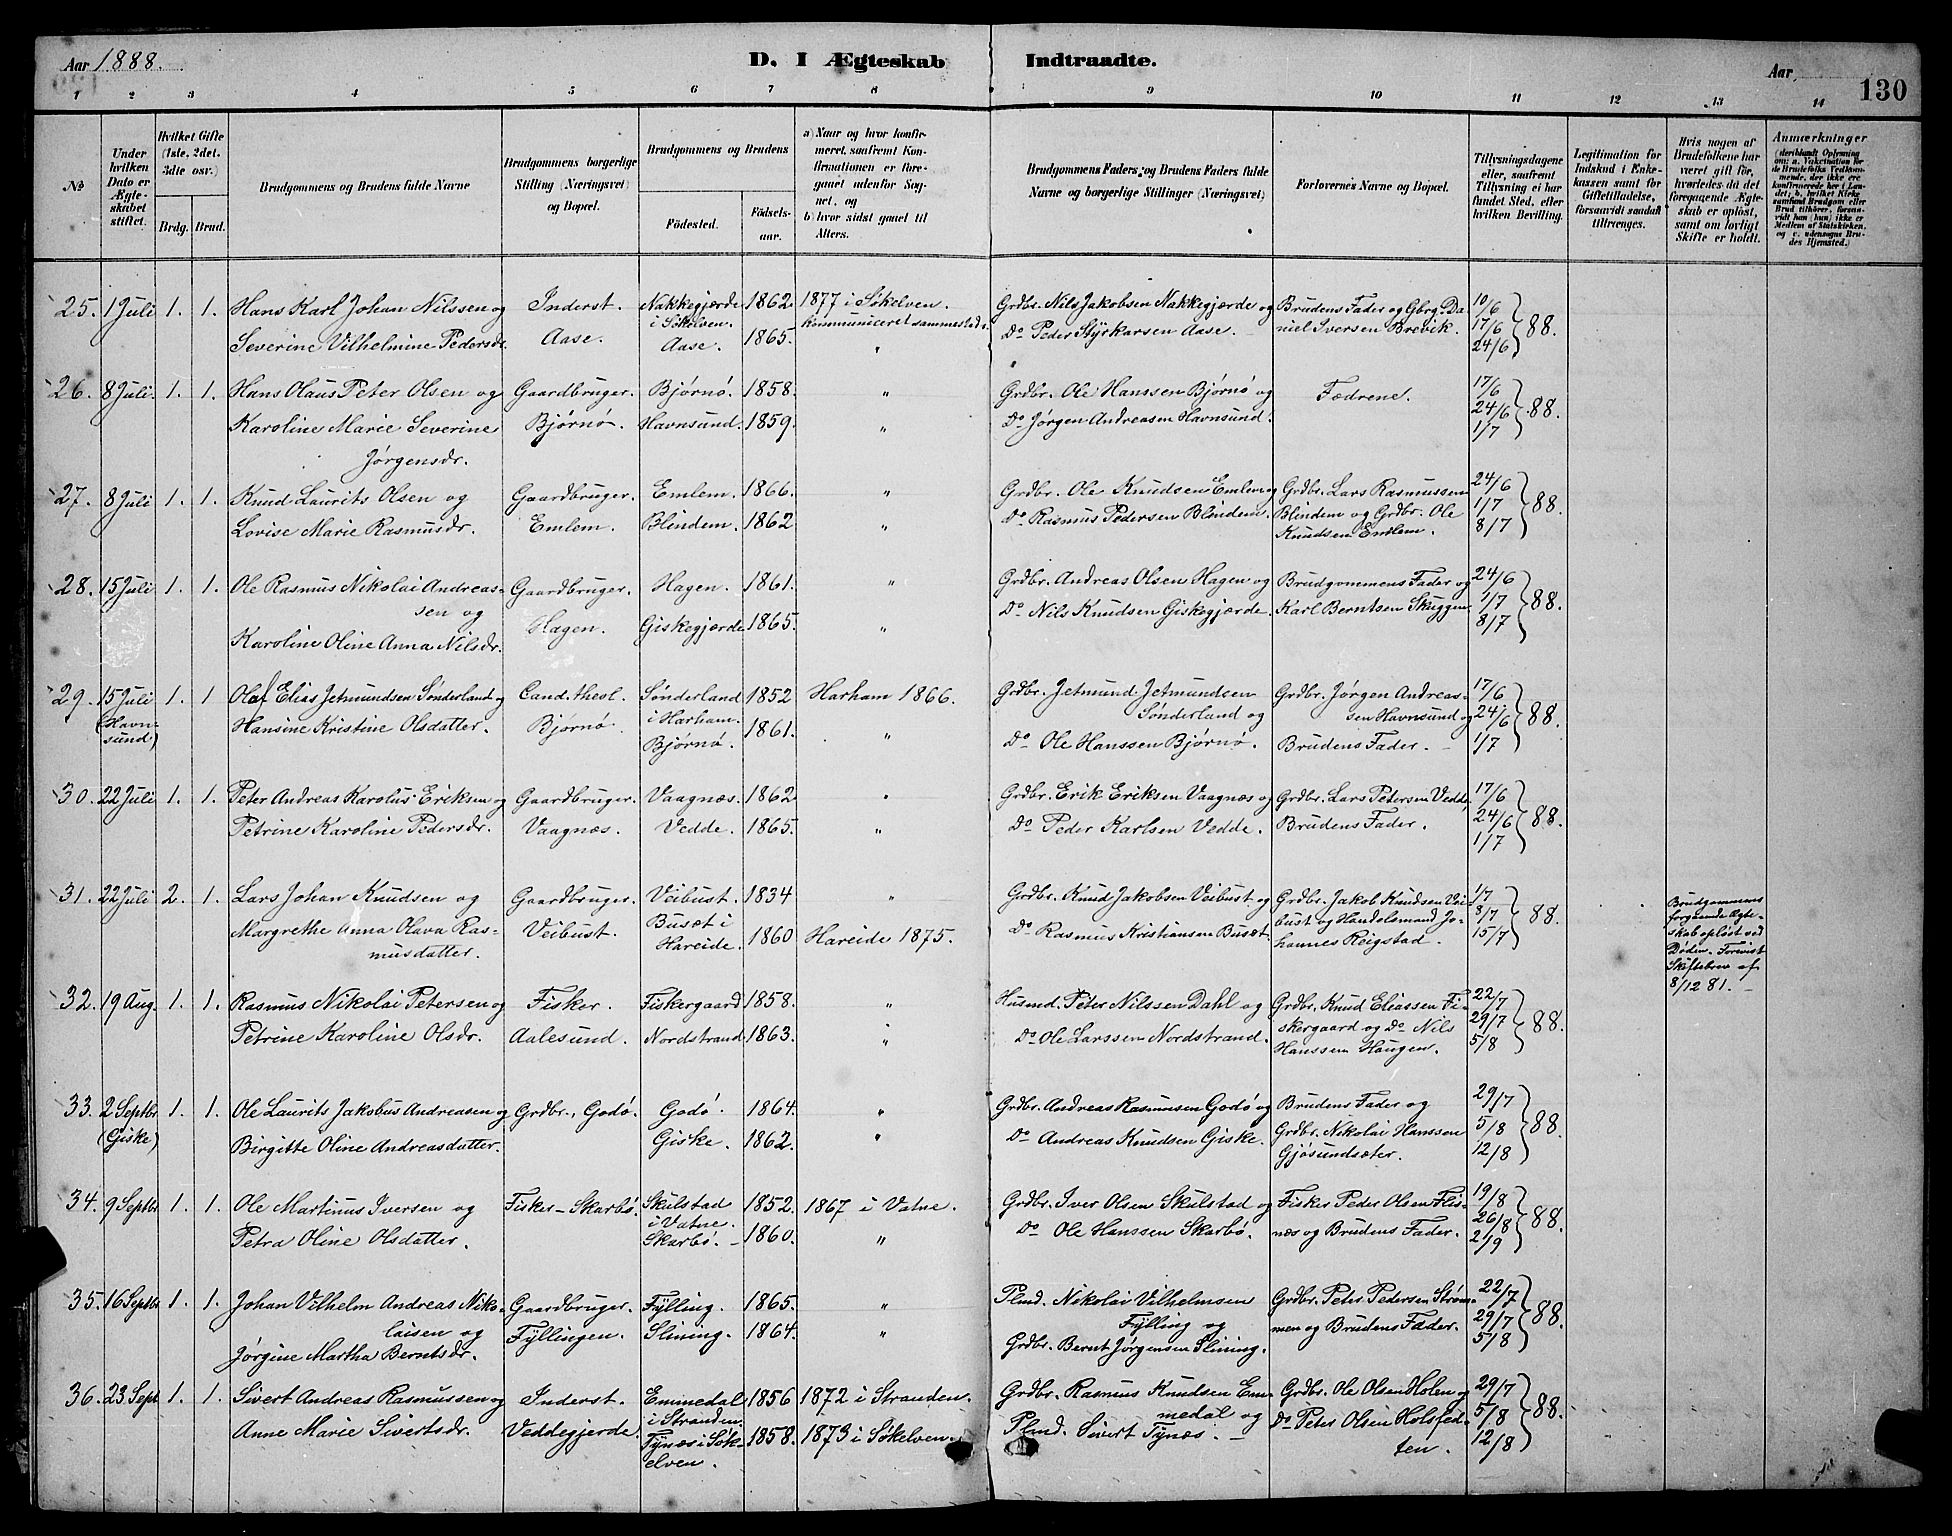 Aar 1888.
D. I Ægteskab Indtraadte.
Aar
130
1 2 3 4 5 6 7 8 9 10 11 12 13 14
No
Under hvilken Dato er Ægteskabet stiftet.
Hvilket Gifte (1ste, 2det, 3die osv.)
Brdg. Brud.
Brudgommens og Brudens fulde Navne
Brudgommens borgerlige Stilling (Næringsvei) og Bopæl.
Brudgommens og Brudens
Födested. Födsels-aar.
a) Naar og hvor konfirmeret, saafremt Konfirmationen er foregaaet udenfor Sognet, og
b) hvor sidst gaaet til Alters.
Brudgommens Faders og Brudens Faders fulde Navne og borgerlige Stillinger (Næringsvei)
Forlovernes Navne og Bopæl.
Tillysningsdagene eller, saafremt Tillysning ei har fundet Sted, efter hvilken Bevilling.
Legitimation for Indskud i Enkekassen samt for Giftetilladelse, forsaavidt saadan tiltrænges.
Hvis nogen af Brudefolkene har været gift før, hvorledes da det foregaaende Ægteskab er opløst, samt om lovligt Skifte er holdt.
Anmærkninger
(deriblandt Oplysning om: a. Vaccination for de Brudefolks Vedkommende, der ikke ere konfirmerede her i Landet; b. hvilket Kirkesamfund Brudgom eller Brud tilhører, forsaavidt han (hun) ikke er Medlem af Statskirken, og c. udensogns Brudes Hjemsted.)
25. 1 Juli 1. 1. Hans Karl Johan Nilssen og Inderst. Nakkegjærde i Søkelven. 1862. 1877 i Søkelven. kommuniceret sammesteds. Grdbr. Nils Jakobsen Nakkegjærde og Brudens Fader og Gbrg. Da- 10/6
Severine Vilhelmine Pedersdr. Aase. Aase. 1865. " Do Peder Styrkarsen Aase. niel Iversen Brevik. 17/6 24/6 88.
26. 8 Juli. 1. 1. Hans Olaus Peter Olsen og Gaardbruger. Bjørnø. 1858. " Grdbr. Ole Hanssen Bjørnø og Fædrene. 17/6
Karoline Marie Severine Bjørnø. Havnsund. 1859. " Do Jørgen Andreasen Havnsund. 24/6 88.
Jørgensdr. 1/7
27. 8 Juli 1. 1. Knud Laurits Olsen og Gaardbruger. Emlem. 1866. " Grdbr. Ole Knudsen Emlem og Grdbr. Lars Rasmussen 24/6
Lovise Marie Rasmusdr. Emlem. Blindem. 1862 " Do Rasmus Pedersen Blindem. Blindem og Grdbr. Ole 1/7 88.
Knudsen Emlem. 8/7
28. 15 Juli 1. 1. Ole Rasmus Nikolai Andreas- Gaardbruger. Hagen. 1861. " Grdbr. Andreas Olsen Hagen og Brudgommens Fader og 24/6
sen og Do Nils Knudsen Giskegjærde. Karl Berntsen Skuggen 1/7 88.
Karoline Oline Anna Nilsdr. Hagen. Giskegjærde 1865. " 8/7
29. 15 Juli (Havnsund) 1. 1 Olaf Elias Jetmundsen Sønderland og Cand. theol. Sønderland i Harham. 1852 Harham 1866. Grdbr. Jetmund Jetmundsen Grdbr. Jørgen Andreas- 17/6
Hansine Kristine Olsdatter. Bjørnø. Bjørnø. 1861. " Sønderland og sen Havnsund og 24/6 88.
Do Ole Hanssen Bjørnø. Brudens Fader. 1/7
30. 22 Juli 1. 1. Peter Andreas Karolus Eriksen og Gaardbruger. Vaagnæs. 1862 " Grdbr. Erik Eriksen Vaagnæs og Grdbr. Lars Petersen Vedde, 17/6
Petrine Karoline Pedersdr. Vaagnæs. Vedde. 1865. " Do Peder Karlsen Vedde. Brudens Fader. 24/6 88.
1/7
31. 22 Juli 2. 1. Lars Johan Knudsen og Gaardbruger. Veibust. 1834 " Grdbr. Knud Jakobsen Veibust og Grdbr. Jakob Knudsen Vei- 1/7 Brudgommens
Margrethe Anna Olava Ras- Veibust. Busæt i Hareide. 1860 Hareide 1875. Do Rasmus Kristiansen Busæt. bust og Handelsmand Jo- 8/7 88. forgaaende Ægte-
musdatter. hannes Reigstad. 15/7 skab opløst ved Døden. Forevist Skiftebrev af 8/12 81.
32. 19 Aug. 1. 1. Rasmus Nikolai Petersen og Fisker. Fiskergaard 1858. " Husmd. Peter Nilssen Dahl og Grdbr. Knud Eliassen Fi- 22/7
Petrine Karoline Olsdr. Aalesund. Nordstrand 1863. " Do Ole Larssen Nordstrand. skergaard og Do Nils 29/7 88.
Hanssen Haugen. 5/8
33. 2 Septbr (Giske) 1. 1. Ole Laurits Jakobus Andreasen og Grdbr., Godø. Godø. 1864. " Grdbr. Andreas Rasmussen Godø og Brudens Fader og 29/7
Birgitte Oline Andreasdatter. Giske. 1862. " Do Andreas Knudsen Giske. Grdbr. Nikolai Hanssen 5/8 88.
Gjøsundsæter. 12/8
34. 9 Septbr 1. 1. Ole Martinus Iversen og Fisker - Skarbø. Skulstad i Vatne. 1852. 1867 i Vatne. Grdbr. Iver Olsen Skulstad og Fisker Peder Olsen Flis- 19/8
Petra Oline Olsdatter. Skarbø. 1860. " Do Ole Hanssen Skarbø. næs og Brudens Fader. 26/8 88.
2/9
35. 16 Septbr 1. 1. Johan Vilhelm Andreas Niko- Gaardbruger. Fylling. 1865. " Plmd. Nikolai Vilhelmsen Grdbr. Peter Pedersen Strøm- 22/7
laisen og Fyllingen. Slining. 1864. " Fylling og men og Brudens Fader. 29/7 88.
Jørgine Martha Berntsdr. Grdbr. Bernt Jørgensen Slining. 5/8
36. 23 Sept 1. 1. Sivert Andreas Rasmussen og Inderst. Emmedal i Stranden. 1856 1872 i Stranden. Grdbr. Rasmus Knudsen Em- Grdbr. Ole Olsen Holen og 29/7
Anne Marie Sivertsdr. Veddegjerde. Tynæs i Søkelven. 1858. 1873 i Søkelven. medal og Do Peter Olsen Holsfed- 5/8 88.
Plmd. Sivert Tynæs. ten. 12/8